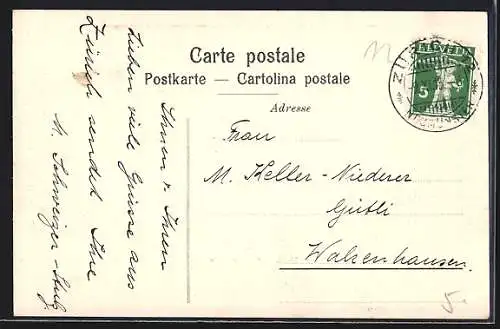 Carte postale
Postkarte — Cartolina postale
Adresse
Frau
M. Keller-Niederer
Gütli
Walzenhausen.
Ihnen & Ihren
Lieben viele Grüsse aus
Zürich sendet Ihre
M. Schweizer-
HELVETIA
5
5.